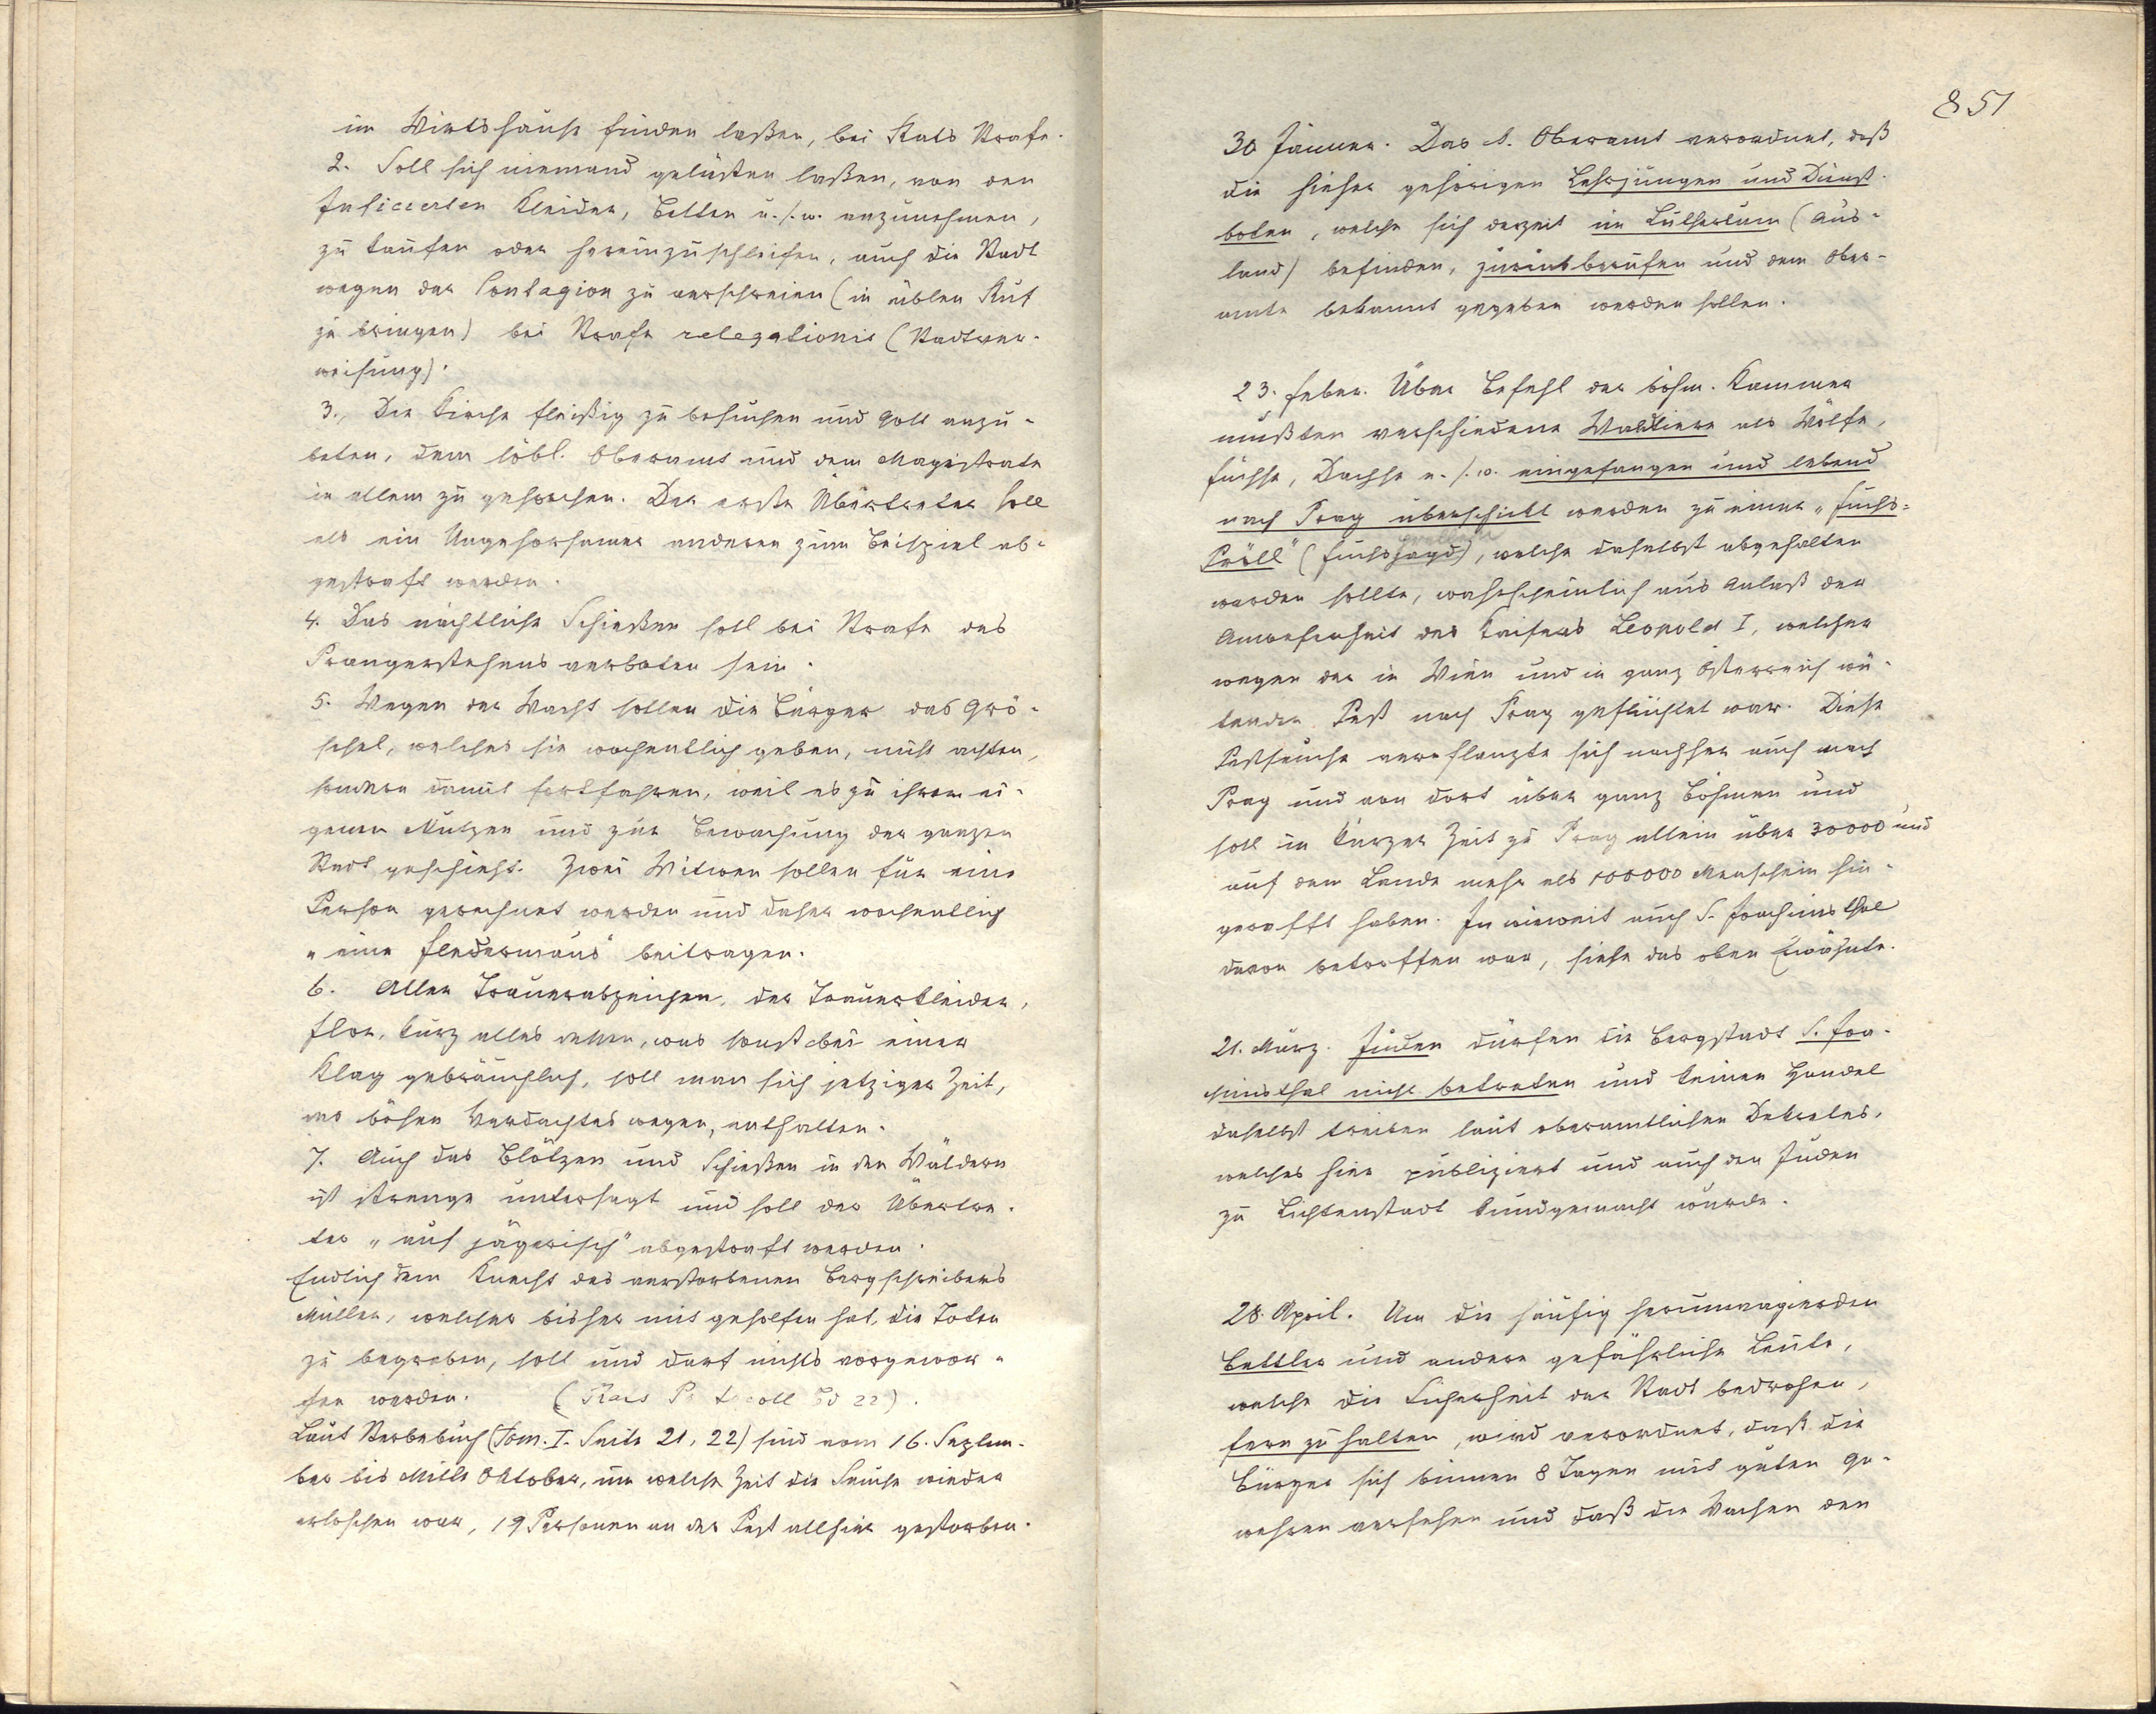 im Wirtshause finden laßen, bei Rats Strafe.
2. Soll sich niemand gelüsten laßen, von den
Inficierten Kleider, Betten u. s. w. anzunehmen,
zu kaufen oder hereinzuschleifen, auch die Stadt
wegen der Contagion zu verschreien (in üblen Ruf
zu bringen) bei Strafe relegationis (Stadtver-
weisung).
3., Die Kirche fleißig zu besuchen und Gott anzu-
beten, dem löbl. Oberamt und dem Magistrate
in allem zu gehorchen. Der erste Übertreter soll
als ein Ungehorsamer anderen zum Beispiel ab-
gestraft werden.
4. Das nächtliche Schießen soll bei Strafe des
Prangerstehens verboten sein.
5. Wegen der Wacht sollen die Bürger das Grö-
schel, welches sie wochentlich geben, nicht achten,
sondern damit fortfahren, weil es zu ihrem ei-
genen Nutzen und zur Bewachung der ganzen
Stadt geschieht. Zwei Witwen sollen für eine
Person gerechnet werden und daher wochentlich
"eine Fledermaus" beitragen.
6. Aller Trauerabzeichen, der Trauerkleider,
Flor, kurz alles dessen, was sonst bei einer
Klag gebräuchlich, soll man sich jetziger Zeit,
des bösen Verdachtes wegen, enthalten.
7. Auch das Blötzen und Schießen in den Wäldern
ist strenge untersagt und soll der Übertre-
ter "auf jägerisch" abgestraft werden.
Endlich dem Knecht des verstorbenen Bergschreibers
Müller, welcher bisher mit geholfen hat, die Toten
zu begraben, soll und darf nichts vorgewor-
fen werden. (Rats Protocoll Bd 22).
Laut Sterbebuch (Tom. I. Seite 21, 22) sind vom 16. Septem-
ber bis Mitte Oktober, um welche Zeit die Seuche wieder
erloschen war, 19 Personen an der Pest allhier gestorben.
851
30 Jänner. Das k. Oberamt verordnet, daß
die hieher gehörigen Lehrjungen und Dienst-
boten, welche sich derzeit im Luthertum (Aus-
land) befinden, zurückberufen und dem Ober-
amte bekannt gegeben werden sollen.
23. Feber. Über Befehl der böhm. Kammer
mußten verschiedene Waldtiere als Wölfe,
Füchse, Dachse u. s. w. eingefangen und lebend
nach Prag überschickt werden zu einer "Fuchs-
Pröll" (Fuchsjagd), welche daselbst abgehalten
werden sollte, wahrscheinlich aus Anlaß der
Anwesenheit des Kaisers Leopold I, welcher
wegen der in Wien und in ganz Österreich wü-
tenden Pest nach Prag geflüchtet war. Diese
Pestseuche verpflanzte sich nachher auch nach
Prag und von dort über ganz Böhmen und
soll in kurzer Zeit zu Prag allein über 30000 und
auf dem Lande mehr als 100000 Menschen hin-
gerafft haben. In wieweit auch S. Joachimsthal
davon betroffen war, siehe das oben Erwähnte.
21. März. Juden dürfen die Bergstadt S. Joa-
chimsthal nicht betreten und keinen Handel
daselbst treiben laut oberamtlichen Dekretes,
welches hier publiziert und auch den Juden
zu Lichtenstadt kundgemacht wurde.
28. April. Um die häufig herumvagierden
Bettler und andere gefährliche Leute,
welche die Sicherheit der Stadt bedrohen,
fern zu halten, wird verordnet, daß die
Bürger sich binnen 8 Tagen mit guten Ge-
wehren versehen und daß die Wachen den